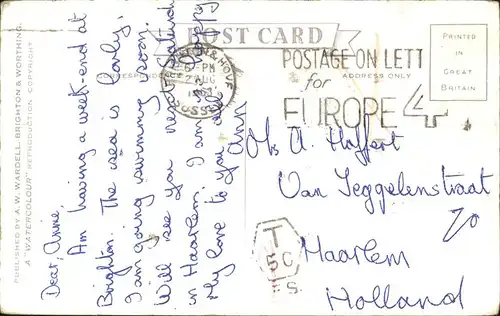 POST CARD
CORRESPONDENCE
ADDRESS ONLY
PRINTED
IN
GREAT
BRITAIN
PUBLISHED BY A. W. WARDELL, BRIGHTON & WORTHING.
A "WATERCOLOUR" REPRODUCTION COPYRIGHT
& HOVE
6-PM
SUSSEX
POSTAGE ON LETT
for
EUROPE 4
Dear, Annie,
Am having a week-end at
Brighton. The sea is lovely.
I am going swimming soon.
Will see you next Saturday
in Haarlem. I am
My love to you all
Ann
A. Haffert
Van Seggelenstraat
Haarlem
Holland
T
5C
F.S.